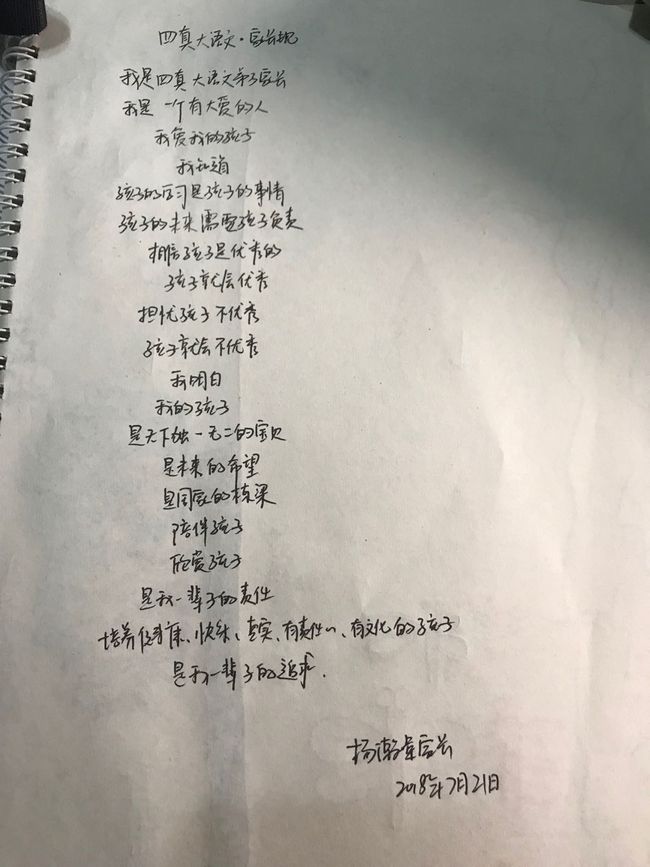 四真大语文·家长规
我是四真大语文弟子家长
我是一个有大爱的人
我爱我的孩子
我知道
孩子的学习是孩子的事情
孩子的未来需要孩子负责
相信孩子是优秀的
孩子就会优秀
担忧孩子不优秀
孩子就会不优秀
我明白
我的孩子
是天下独一无二的宝贝
是未来的希望
是国家的栋梁
陪伴孩子
欣赏孩子
是我一辈子的责任
培养健康、快乐、真实、有责任心、有文化的孩子
是我一辈子的追求.
杨瀚 家长
2018年7月21日